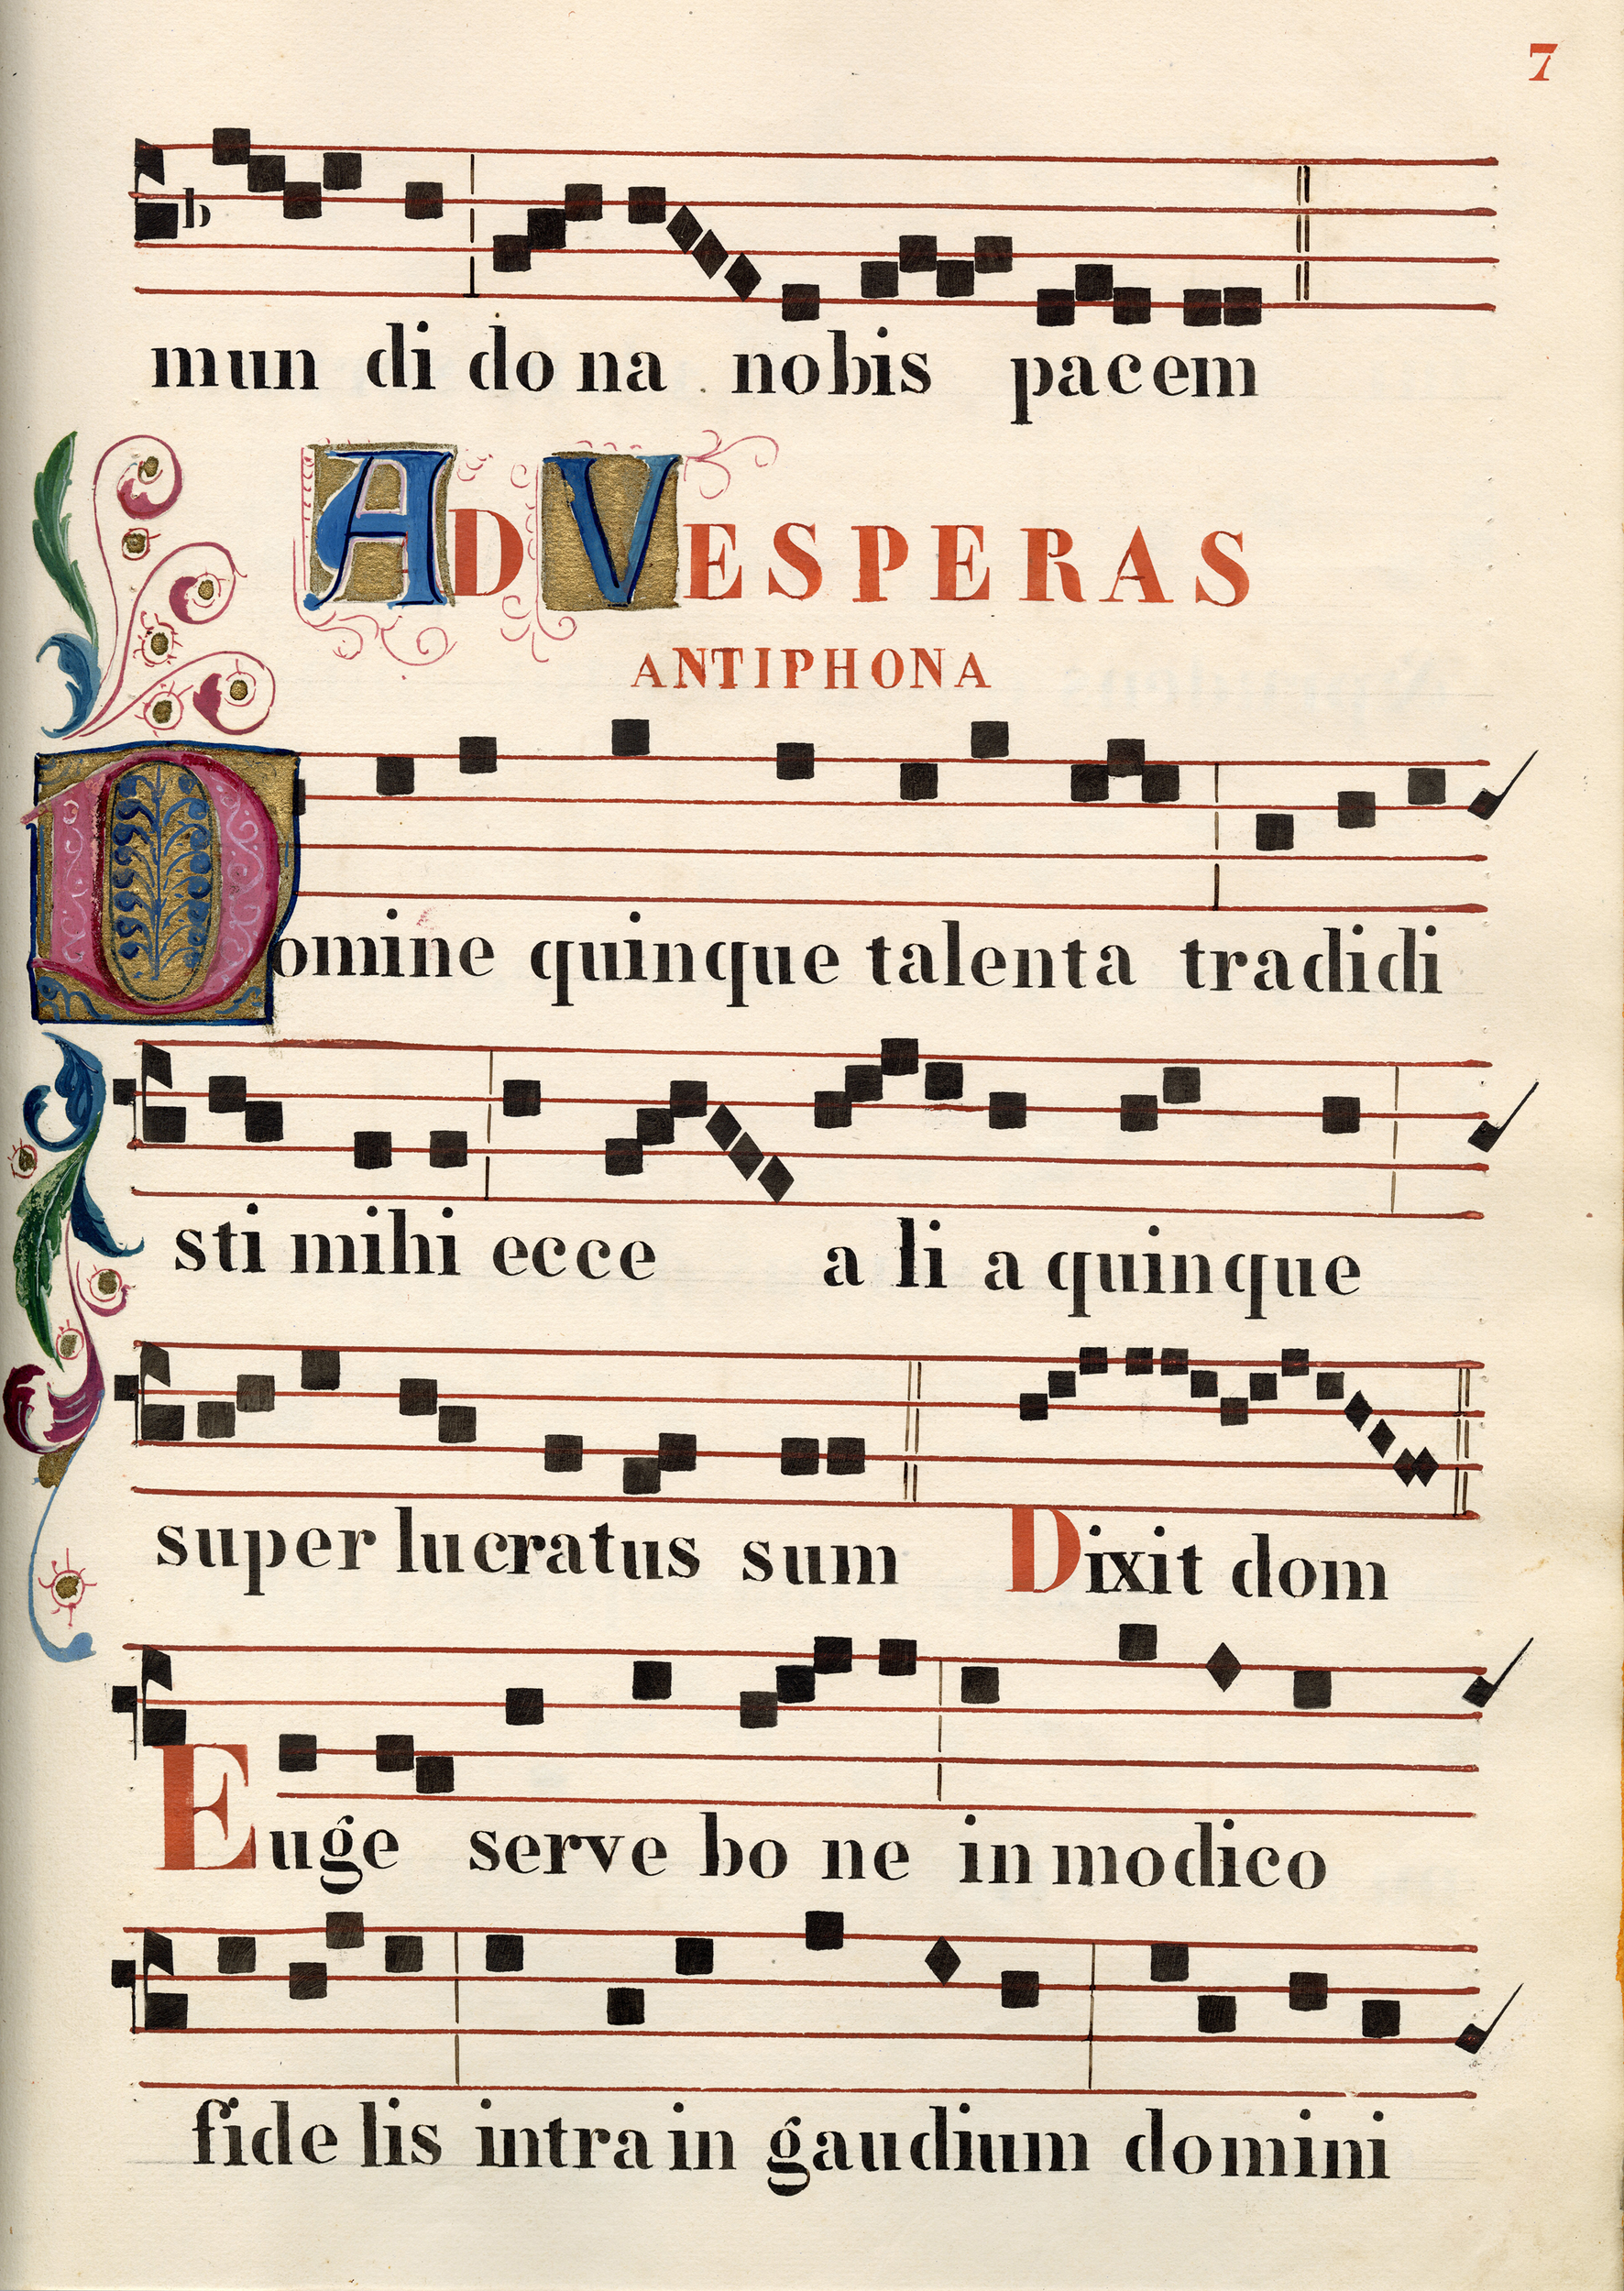 7
b
mun di do na nobis pacem
AD VESPERAS
ANTIPHONA
Domine quinque talenta tradidi
sti mihi ecce a li a quinque
super lucratus sum Dixit dom
Euge serve bo ne in modico
fide lis intra in gaudium domini